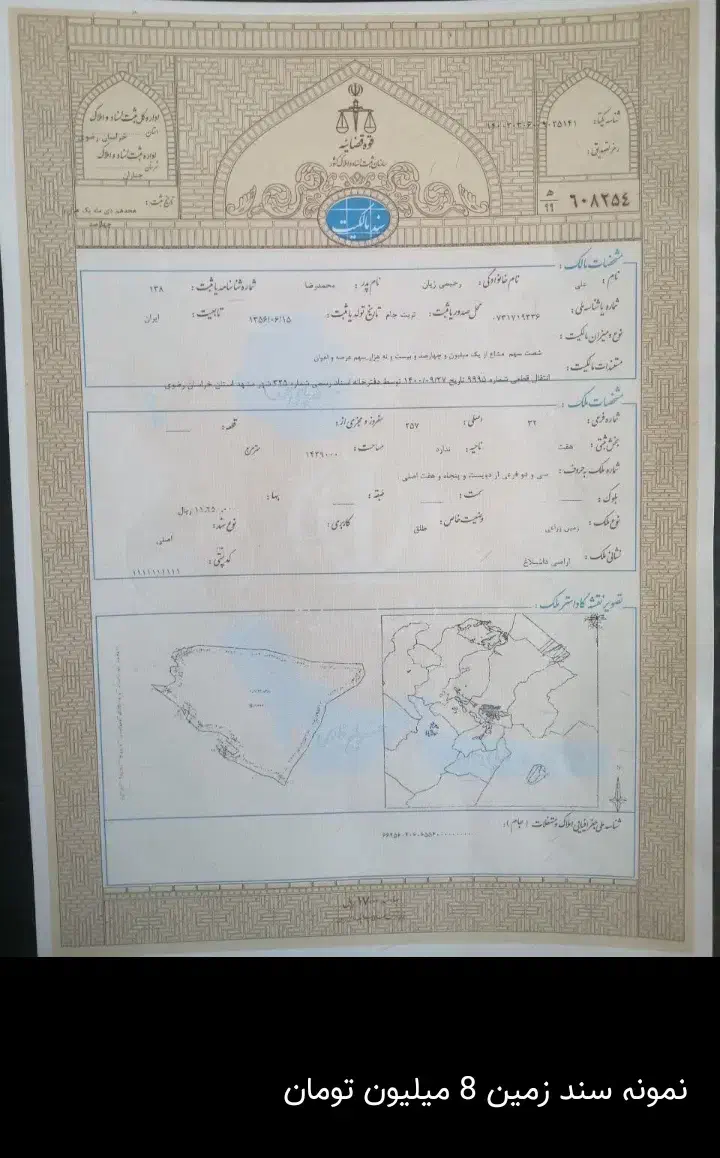 قوه قضائیه
سازمان ثبت اسناد و املاک کشور
سند مالکیت
اداره کل ثبت اسناد و املاک
استان خراسان رضوی
اداره ثبت اسناد و املاک
تاریخ ثبت:
شناسه یکتا:
رمز تصدیق:
۶۰۸۲۵۴ ه/۹۹
مشخصات مالک:
نام: علی نام خانوادگی: رحیمی زیان نام پدر: محمدرضا شماره شناسنامه یا ثبت: ۱۳۸
شماره یا شناسه ملی: ۰۷۳۱۷۱۹۲۳۶ محل صدور یا ثبت: تربت جام تاریخ تولد یا ثبت: ۱۳۵۶/۰۶/۱۵ تابعیت: ایران
نوع و میزان مالکیت:
شصت سهم مشاع از یک میلیون و چهارصد و بیست و نه هزار سهم عرصه و اعیان
مستندات مالکیت:
انتقال قطعی شماره ۹۹۹۵ تاریخ ۱۴۰۰/۰۹/۲۷ توسط دفترخانه اسناد رسمی شماره ۳۲۵ شهر مشهد استان خراسان رضوی
مشخصات ملک:
شماره فرعی: ۳۲ اصلی: ۲۵۷ مفروز و مجزی از: قطعه:
بخش ثبتی: هفت ناحیه: ندارد مساحت: ۱۴۲۹۰۰۰ مترمربع
شماره ملک به حروف: سی و دو فرعی از دویست و پنجاه و هفت اصلی
بلوک: سمت: طبقه: بها: ریال
نوع ملک: زمین زراعی وضعیت خاص: طلق کاربری: نوع سند: اصلی
نشانی ملک: اراضی کد پستی: ۱۱۱۱۱۱۱۱۱۱
تصویر نقشه کاداستر ملک:
شناسه ملی جغرافیایی املاک و مستغلات (جام):
نمونه سند زمین 8 میلیون تومان